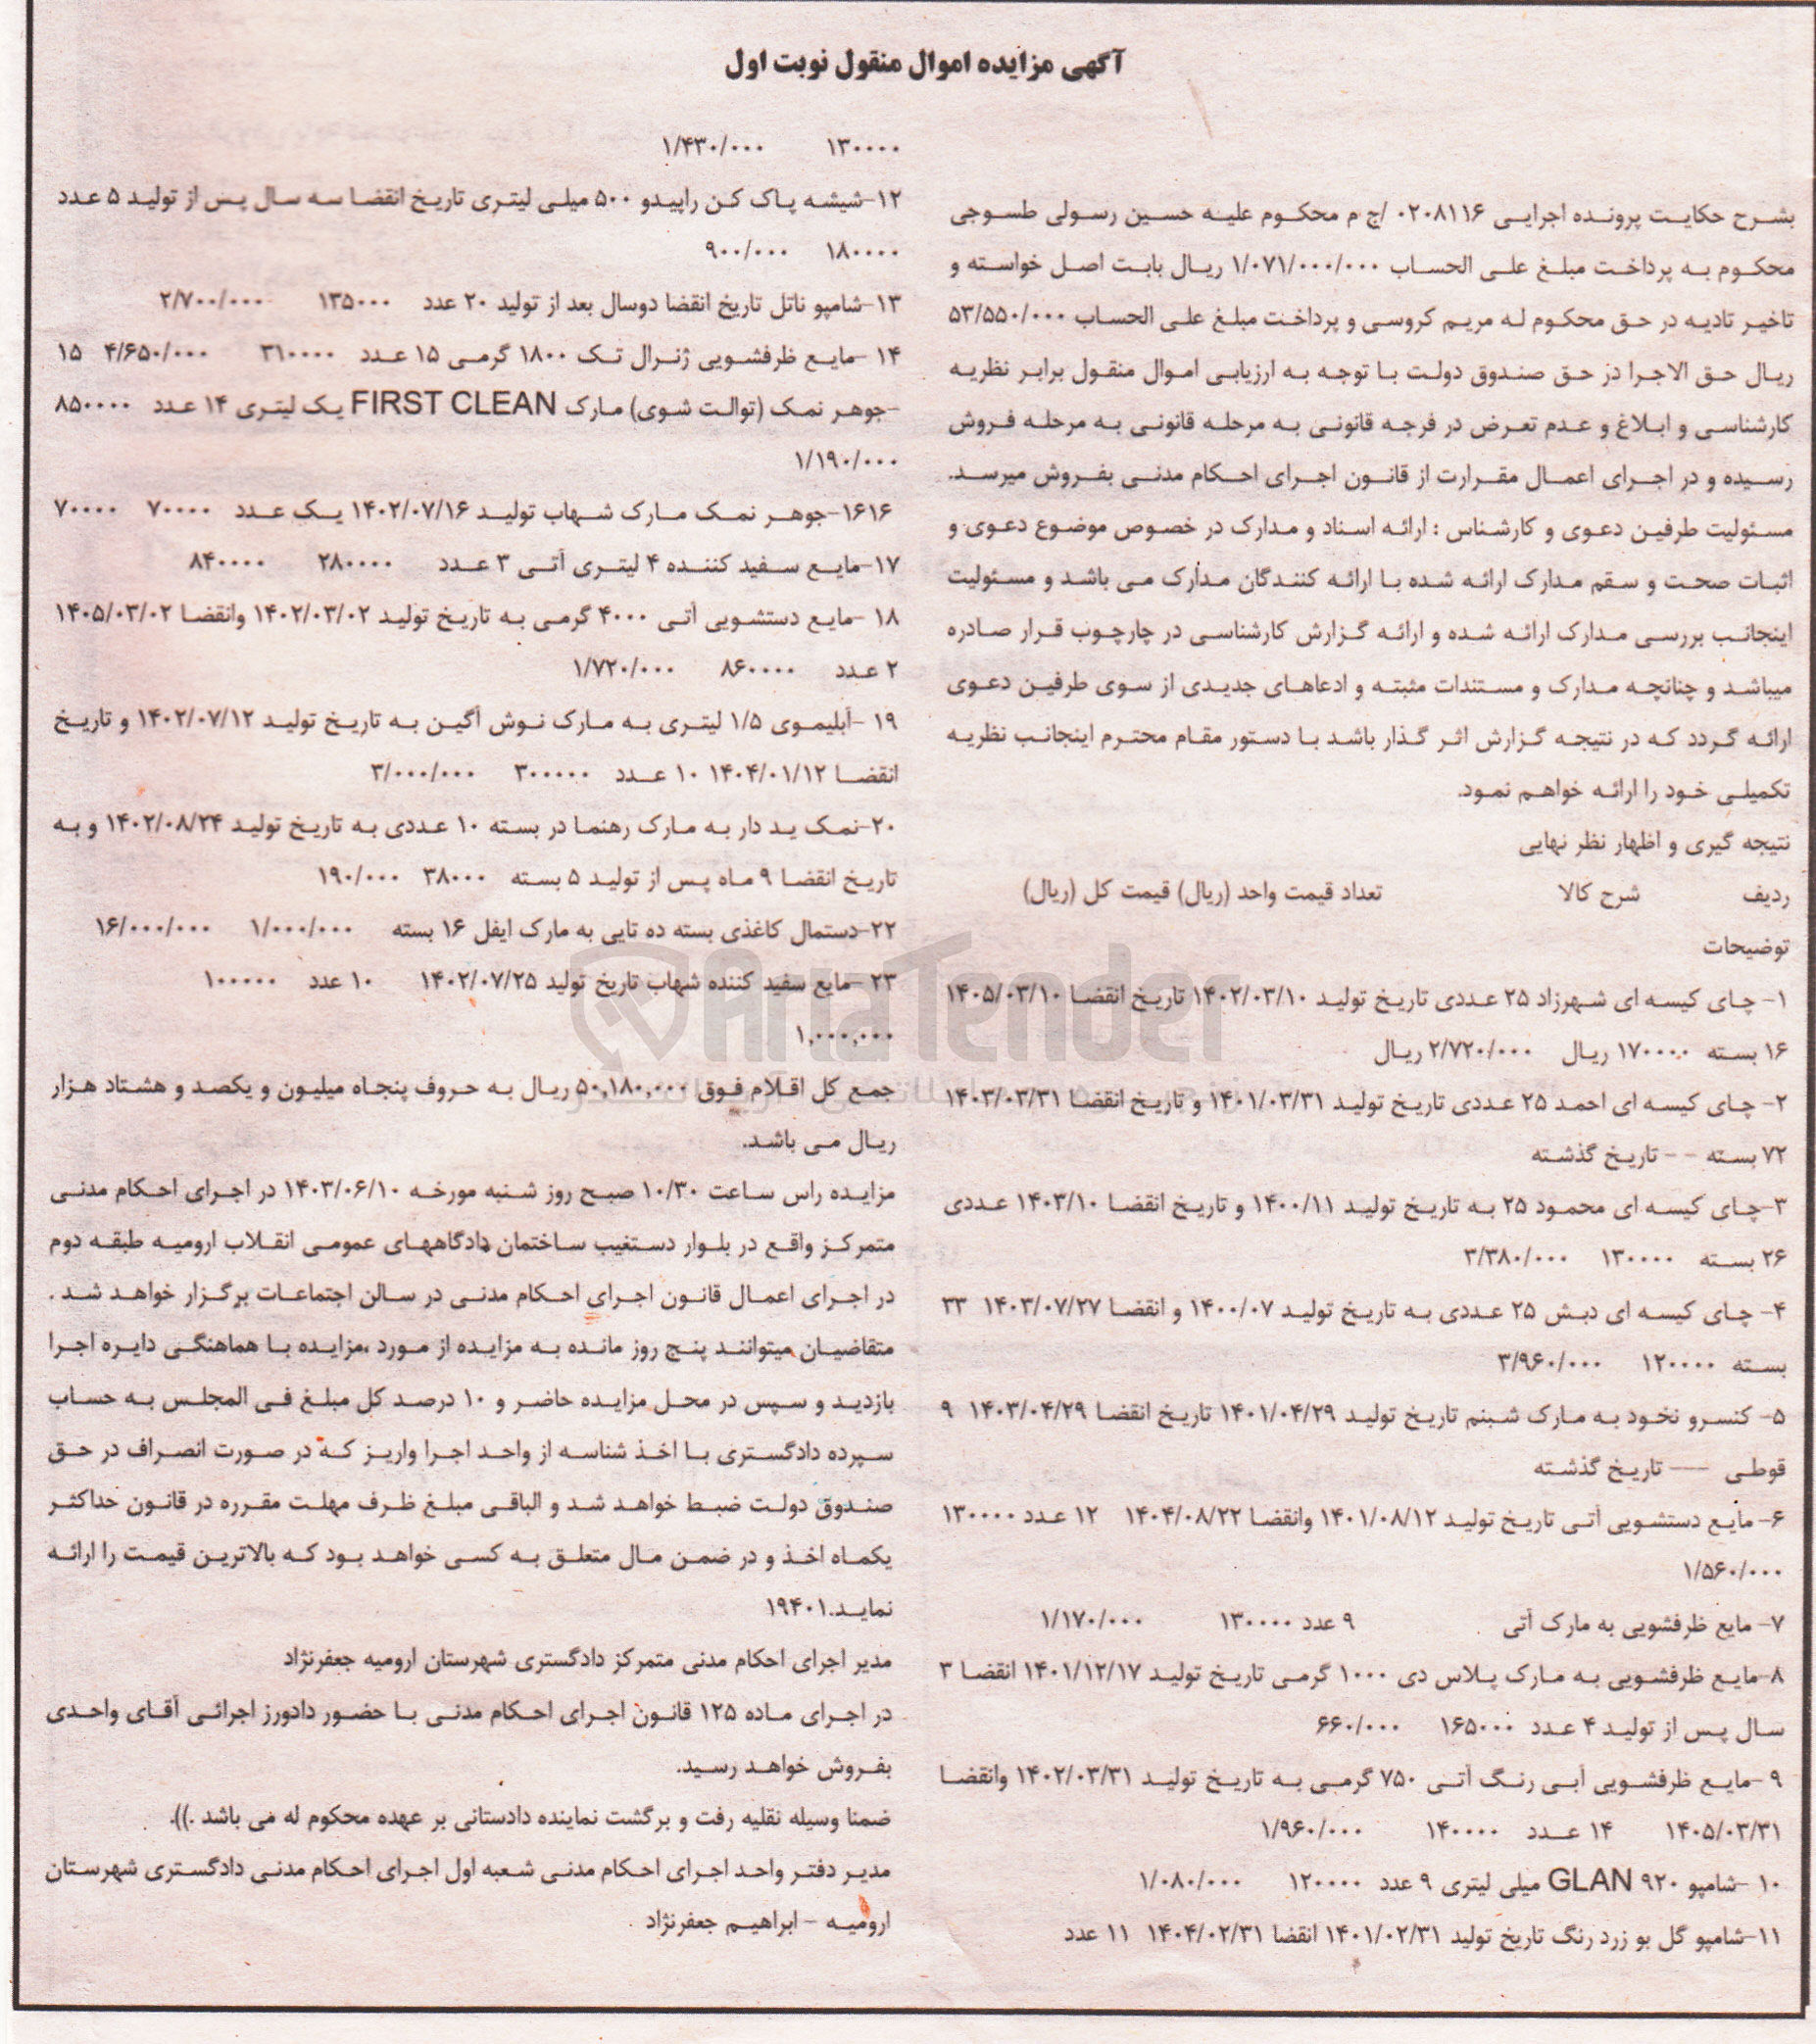 آگهی مزایده اموال منقول نوبت اول
بشرح حکایت پرونده اجرایی ۰۲۰۸۱۱۶ /ج م محکوم علیه حسین رسولی طسوجی
محکوم به پرداخت مبلغ علی الحساب ۱/۰۷۱/۰۰۰/۰۰۰ ریال بابت اصل خواسته و
تاخیر تادیه در حق محکوم له مریم کروسی و پرداخت مبلغ علی الحساب ۵۳/۵۵۰/۰۰۰
ریال حق الاجرا در حق صندوق دولت با توجه به ارزیابی اموال منقول برابر نظریه
کارشناسی و ابلاغ و عدم تعرض در فرجه قانونی به مرحله قانونی به مرحله فروش
رسیده و در اجرای اعمال مقرارت از قانون اجرای احکام مدنی بفروش میرسد.
مسئولیت طرفین دعوی و کارشناس : ارائه اسناد و مدارک در خصوص موضوع دعوی و
اثبات صحت و سقم مدارک ارائه شده با ارائه کنندگان مدارک می باشد و مسئولیت
اینجانب بررسی مدارک ارائه شده و ارائه گزارش کارشناسی در چارچوب قرار صادره
میباشد و چنانچه مدارک و مستندات مثبته و ادعاهای جدیدی از سوی طرفین دعوی
ارائه گردد که در نتیجه گزارش اثر گذار باشد با دستور مقام محترم اینجانب نظریه
تکمیلی خود را ارائه خواهم نمود.
نتیجه گیری و اظهار نظر نهایی
ردیف شرح کالا تعداد قیمت واحد (ریال) قیمت کل (ریال)
توضیحات
۱- چای کیسه ای شهرزاد ۲۵ عددی تاریخ تولید ۱۴۰۲/۰۳/۱۰ تاریخ انقضا ۱۴۰۵/۰۳/۱۰
۱۶ بسته ۱۷۰۰۰۰ ریال ۲/۷۲۰/۰۰۰ ریال
۲- چای کیسه ای احمد ۲۵ عددی تاریخ تولید ۱۴۰۱/۰۳/۳۱ و تاریخ انقضا ۱۴۰۳/۰۳/۳۱
۷۲ بسته - - تاریخ گذشته
۳-چای کیسه ای محمود ۲۵ به تاریخ تولید ۱۴۰۰/۱۱ و تاریخ انقضا ۱۴۰۳/۱۰ عددی
۲۶ بسته ۱۳۰۰۰۰ ۳/۳۸۰/۰۰۰
۴- چای کیسه ای دبش ۲۵ عددی به تاریخ تولید ۱۴۰۰/۰۷ و انقضا ۱۴۰۳/۰۷/۲۷ ۳۳
بسته ۱۲۰۰۰۰ ۳/۹۶۰/۰۰۰
۵- کنسرو نخود به مارک شبنم تاریخ تولید ۱۴۰۱/۰۴/۲۹ تاریخ انقضا ۱۴۰۳/۰۴/۲۹ ۹
قوطی --- تاریخ گذشته
۶- مایع دستشویی آتی تاریخ تولید ۱۴۰۱/۰۸/۱۲ وانقضا ۱۴۰۴/۰۸/۲۲ ۱۲ عدد ۱۳۰۰۰۰
۱/۵۶۰/۰۰۰
۷- مایع ظرفشویی به مارک آتی ۹ عدد ۱۳۰۰۰۰ ۱/۱۷۰/۰۰۰
۸-مایع ظرفشویی به مارک پلاس دی ۱۰۰۰ گرمی تاریخ تولید ۱۴۰۱/۱۲/۱۷ انقضا ۳
سال پس از تولید ۴ عدد ۱۶۵۰۰۰ ۶۶۰/۰۰۰
۹ -مایع ظرفشویی آبی رنگ آتی ۷۵۰ گرمی به تاریخ تولید ۱۴۰۲/۰۳/۳۱ وانقضا
۱۴۰۵/۰۳/۳۱ ۱۴ عدد ۱۴۰۰۰۰ ۱/۹۶۰/۰۰۰
۱۰ -شامپو GLAN ۹۲۰ میلی لیتری ۹ عدد ۱۲۰۰۰۰ ۱/۰۸۰/۰۰۰
۱۱-شامپو گل بو زرد رنگ تاریخ تولید ۱۴۰۱/۰۲/۳۱ انقضا ۱۴۰۴/۰۲/۳۱ ۱۱ عدد
۱۳۰۰۰۰ ۱/۴۳۰/۰۰۰
۱۲-شیشه پاک کن راپیدو ۵۰۰ میلی لیتری تاریخ انقضا سه سال پس از تولید ۵ عدد
۱۸۰۰۰۰ ۹۰۰/۰۰۰
۱۳-شامپو ناتل تاریخ انقضا دوسال بعد از تولید ۲۰ عدد ۱۳۵۰۰۰ ۲/۷۰۰/۰۰۰
۱۴ -مایع ظرفشویی ژنرال تک ۱۸۰۰ گرمی ۱۵ عدد ۳۱۰۰۰۰ ۴/۶۵۰/۰۰۰ ۱۵
-جوهر نمک (توالت شوی) مارک FIRST CLEAN یک لیتری ۱۴ عدد ۸۵۰۰۰۰
۱/۱۹۰/۰۰۰
۱۶۱۶-جوهر نمک مارک شهاب تولید ۱۴۰۲/۰۷/۱۶ یک عدد ۷۰۰۰۰ ۷۰۰۰۰
۱۷-مایع سفید کننده ۴ لیتری آتی ۳ عدد ۲۸۰۰۰۰ ۸۴۰۰۰۰
۱۸ -مایع دستشویی آتی ۴۰۰۰ گرمی به تاریخ تولید ۱۴۰۲/۰۳/۰۲ وانقضا ۱۴۰۵/۰۳/۰۲
۲ عدد ۸۶۰۰۰۰ ۱/۷۲۰/۰۰۰
۱۹ -آبلیموی ۱/۵ لیتری به مارک نوش آگین به تاریخ تولید ۱۴۰۲/۰۷/۱۲ و تاریخ
انقضا ۱۴۰۴/۰۱/۱۲ ۱۰ عدد ۳۰۰۰۰۰ ۳/۰۰۰/۰۰۰
۲۰-نمک ید دار به مارک رهنما در بسته ۱۰ عددی به تاریخ تولید ۱۴۰۲/۰۸/۲۴ و به
تاریخ انقضا ۹ ماه پس از تولید ۵ بسته ۳۸۰۰۰ ۱۹۰/۰۰۰
۲۲-دستمال کاغذی بسته ده تایی به مارک ایفل ۱۶ بسته ۱/۰۰۰/۰۰۰ ۱۶/۰۰۰/۰۰۰
۲۳ -مایع سفید کننده شهاب تاریخ تولید ۱۴۰۲/۰۷/۲۵ ۱۰ عدد ۱۰۰۰۰۰
۱,۰۰۰,۰۰۰
جمع کل اقلام فوق ۵۰,۱۸۰,۰۰۰ ریال به حروف پنجاه میلیون و یکصد و هشتاد هزار
ریال می باشد.
مزایده راس ساعت ۱۰/۳۰ صبح روز شنبه مورخه ۱۴۰۳/۰۶/۱۰ در اجرای احکام مدنی
متمرکز واقع در بلوار دستغیب ساختمان دادگاههای عمومی انقلاب ارومیه طبقه دوم
در اجرای اعمال قانون اجرای احکام مدنی در سالن اجتماعات برگزار خواهد شد .
متقاضیان میتوانند پنج روز مانده به مزایده از مورد ،مزایده با هماهنگی دایره اجرا
بازدید و سپس در محل مزایده حاضر و ۱۰ درصد کل مبلغ فی المجلس به حساب
سپرده دادگستری با اخذ شناسه از واحد اجرا واریز که در صورت انصراف در حق
صندوق دولت ضبط خواهد شد و الباقی مبلغ ظرف مهلت مقرره در قانون حداکثر
یکماه اخذ و در ضمن مال متعلق به کسی خواهد بود که بالاترین قیمت را ارائه
نماید.۱۹۴۰۱
مدیر اجرای احکام مدنی متمرکز دادگستری شهرستان ارومیه جعفرنژاد
در اجرای ماده ۱۲۵ قانون اجرای احکام مدنی با حضور دادورز اجرائی آقای واحدی
بفروش خواهد رسید.
ضمنا وسیله نقلیه رفت و برگشت نماینده دادستانی بر عهده محکوم له می باشد .)).
مدیر دفتر واحد اجرای احکام مدنی شعبه اول اجرای احکام مدنی دادگستری شهرستان
ارومیه - ابراهیم جعفرنژاد
AriaTender